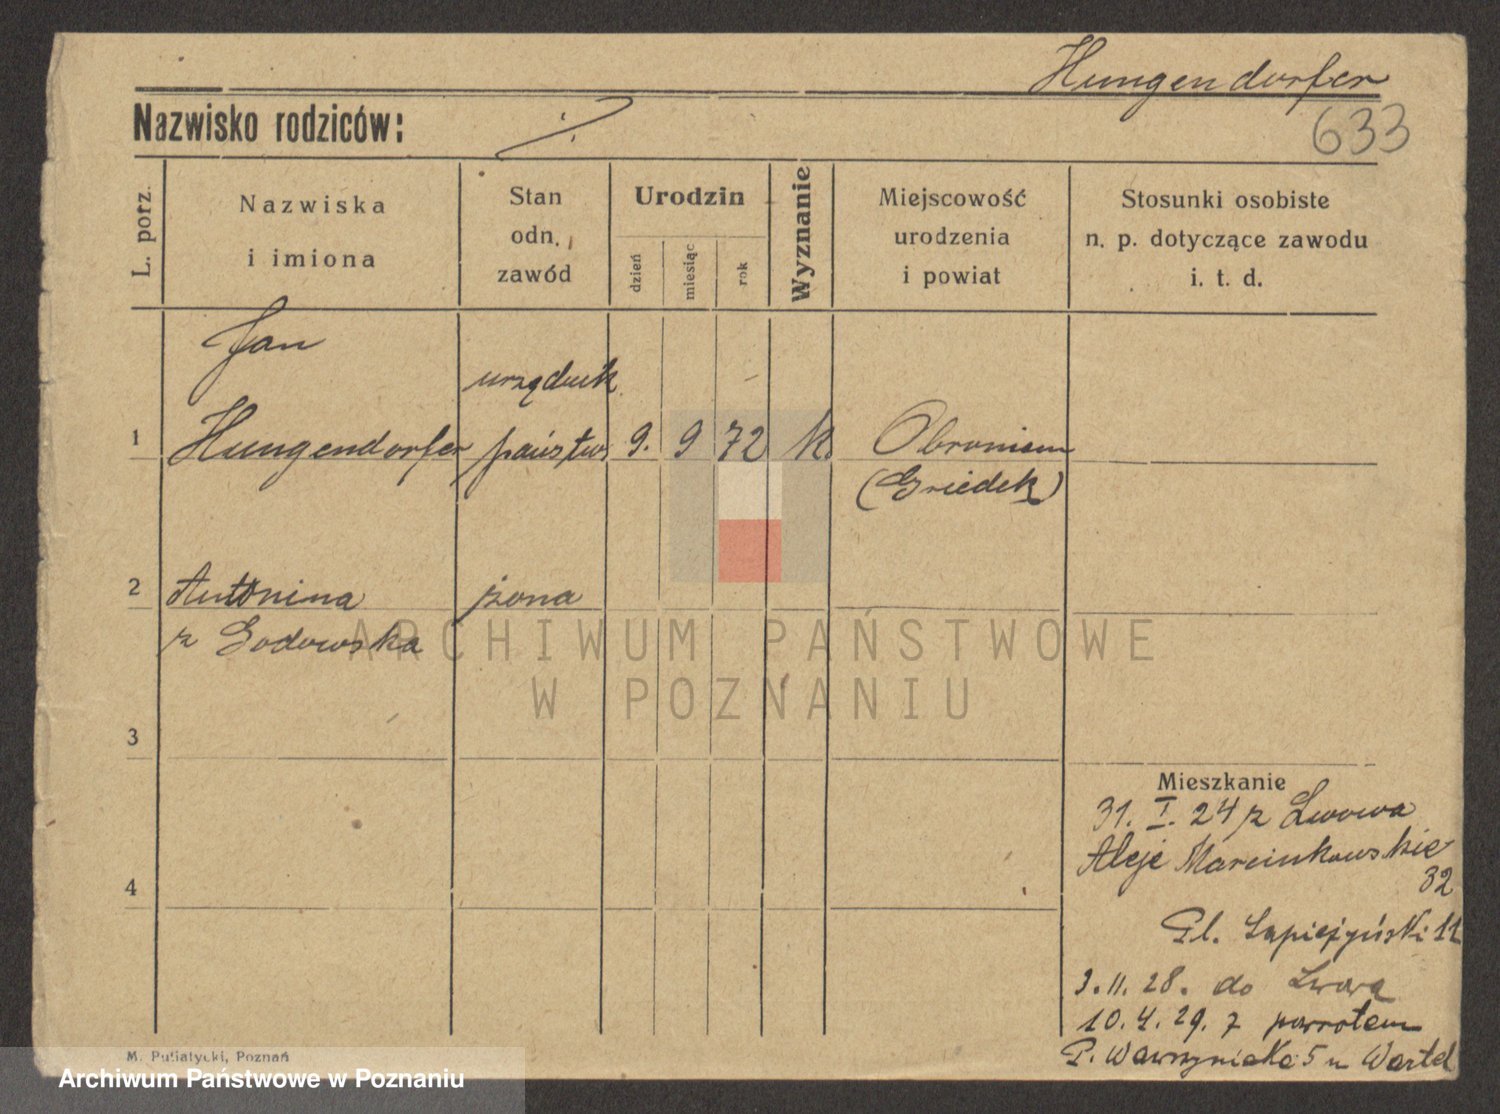 Hungendorfer
Nazwisko rodziców: ·/·
633
L. porz.
Nazwiska
i imiona
Stan
odn.
zawód
Urodzin
dzień
miesiąc
rok
Wyznanie
Miejscowość
urodzenia
i powiat
Stosunki osobiste
n. p. dotyczące zawodu
i. t. d.
Jan
urzędnik
1 Hungendorfer państw. 9. 9 72 k.
(Griedek)
2 Antonina żona
z Godowska
ARCHIWUM PAŃSTWOWE
W POZNANIU
3
Mieszkanie
31. I. 24 z Lwowa
Aleje Marcinkowskie
32
4
Pl. Sapieżyński 11
3. 11. 28. do Lwowa
10. 4. 29. z powrotem
M. Putiatycki, Poznań
Archiwum Państwowe w Poznaniu